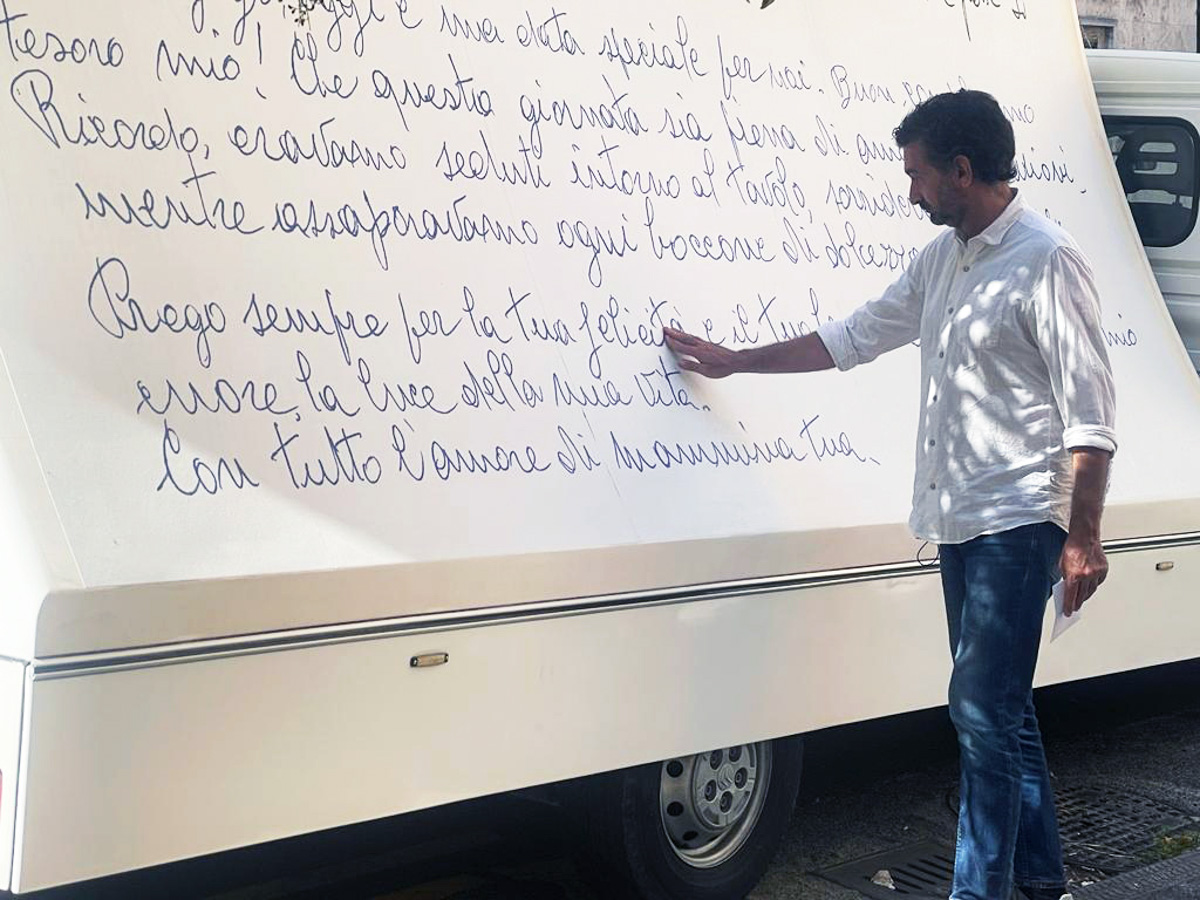 oggi è una data speciale per noi. Buon
tesoro mio! Che questa giornata sia piena di
Ricordo, eravamo seduti intorno al tavolo,
mentre assaporavamo ogni boccone di
Prego sempre per la tua felicità e il tuo mio
cuore, la luce della mia vita.
Con tutto l'amore di mammina tua.